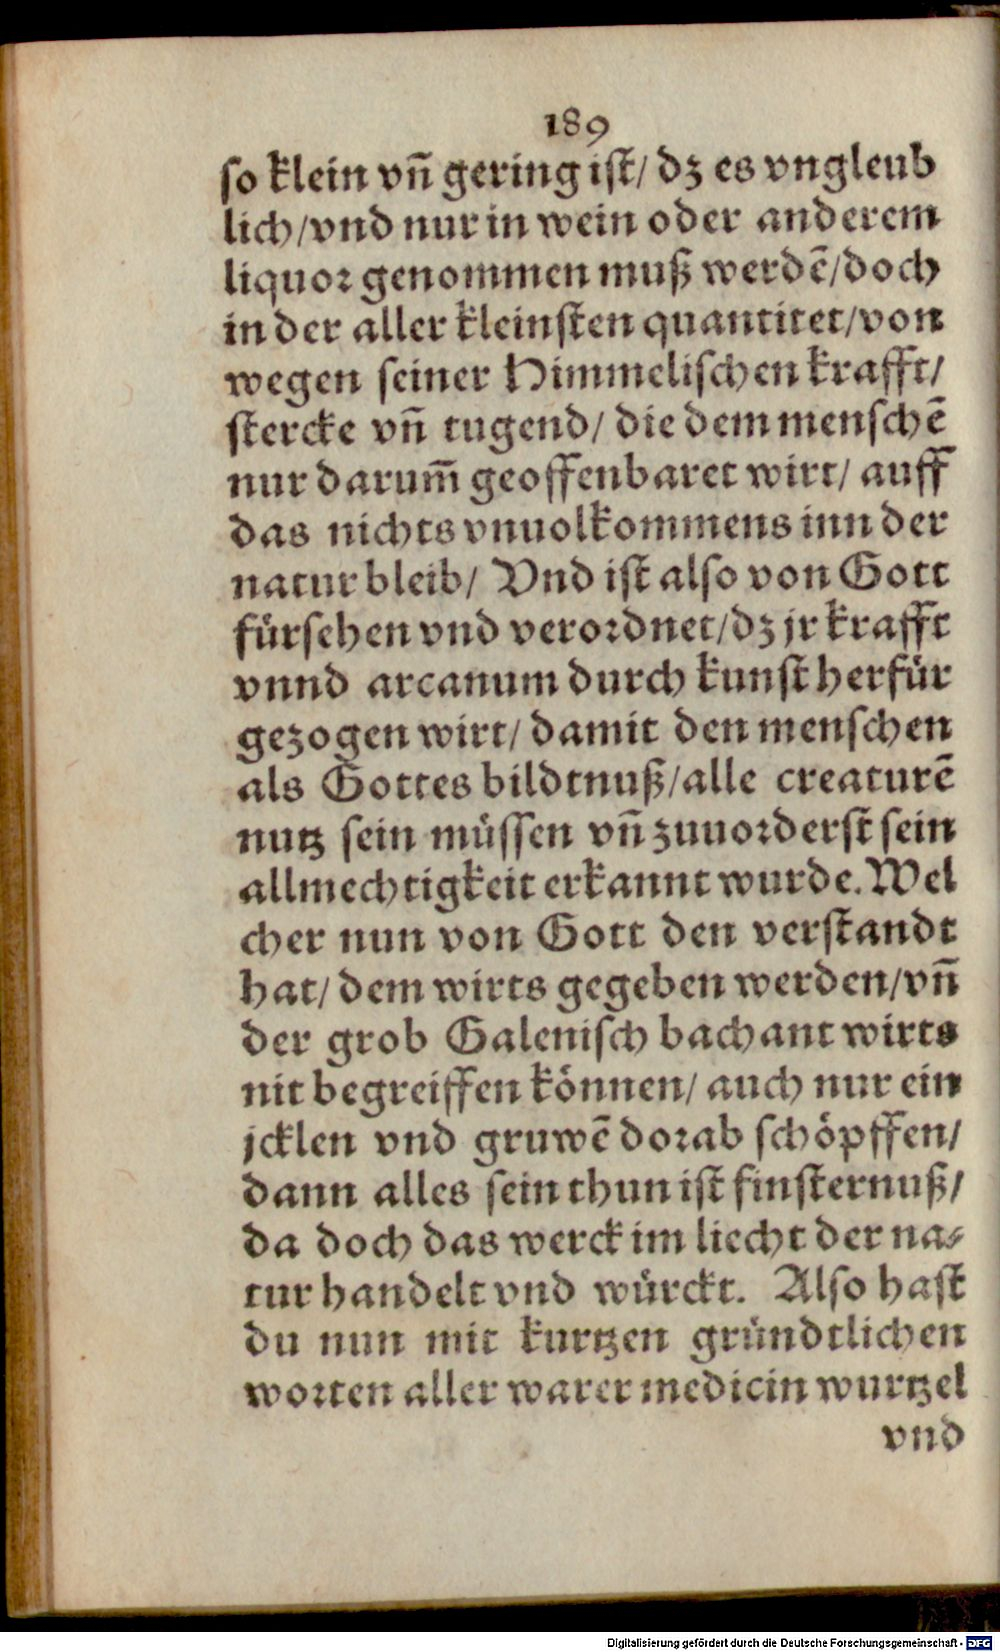 189
so klein vn̄ gering ist/ dz es vngleub
lich/vnd nur in wein oder anderem
liquor genommen muß werdē/doch
in der aller kleinsten quantitet/von
wegen seiner Himmelischen krafft/
stercke vn̄ tugend/ die dem menschē
nur darum̄ geoffenbaret wirt/ auff
das nichts vnuolkommens inn der
natur bleib/ Vnd ist also von Gott
fürsehen vnd verordnet/dz jr krafft
vnnd arcanum durch kunst herfür
gezogen wirt/ damit den menschen
als Gottes bildtnuß/alle creaturē
nutz sein müssen vn̄ zuuorderst sein
allmechtigkeit erkannt wurde. Wel
cher nun von Gott den verstandt
hat/ dem wirts gegeben werden/vn̄
der grob Galenisch bachant wirts
nit begreiffen können/ auch nur ein
jcklen vnd gruwē dorab schöpffen/
dann alles sein thun ist finsternuß/
da doch das werck im liecht der na-
tur handelt vnd würckt. Also hast
du nun mit kurtzen gründtlichen
worten aller warer medicin wurtzel
vnd
Digitalisierung gefördert durch die Deutsche Forschungsgemeinschaft - DFG